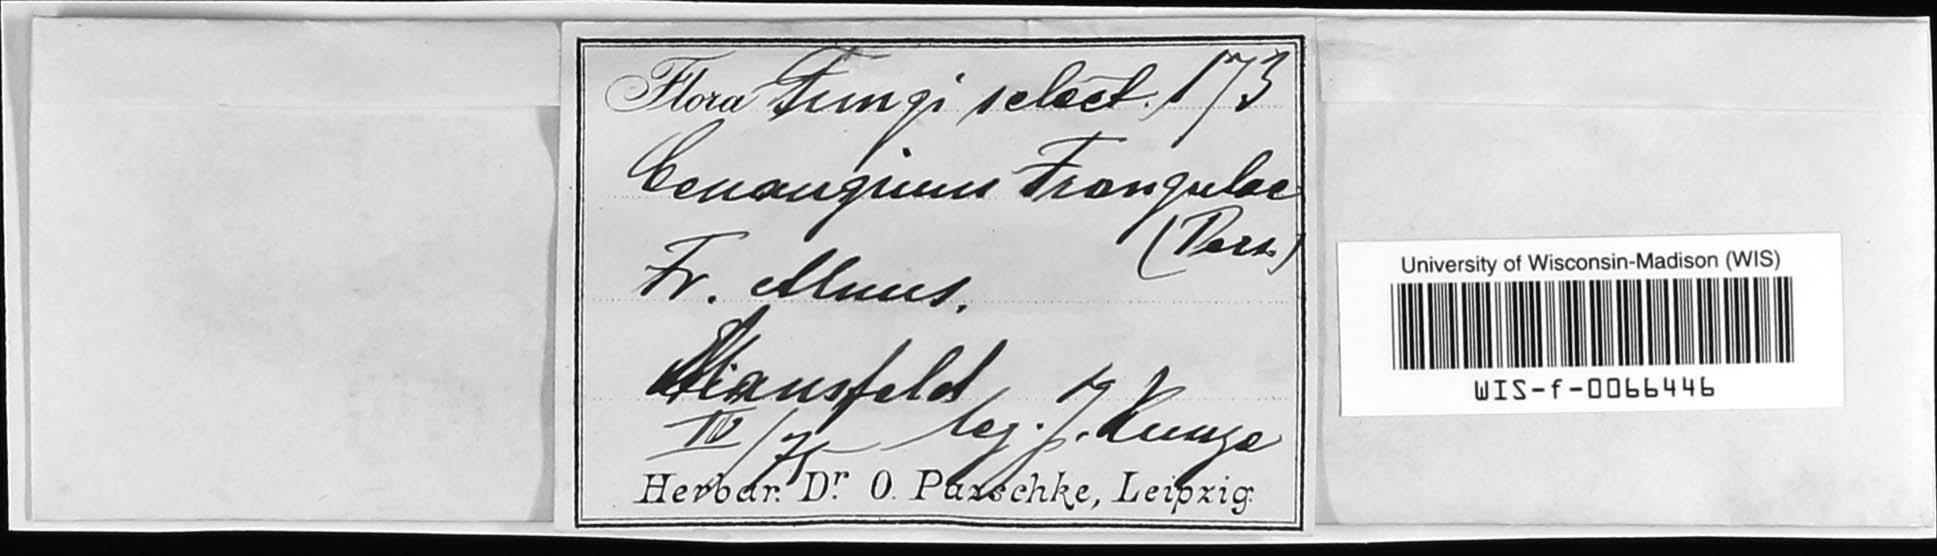 Flora Fungi select. 173
Cenangium Frangulae
(Pers.)
Fr. Alnus.
Mansfeld
IV/75 leg. J. Kunze
Herbar. Dr. O. Pazschke, Leipzig.
University of Wisconsin-Madison (WIS)
WIS-f-0066446